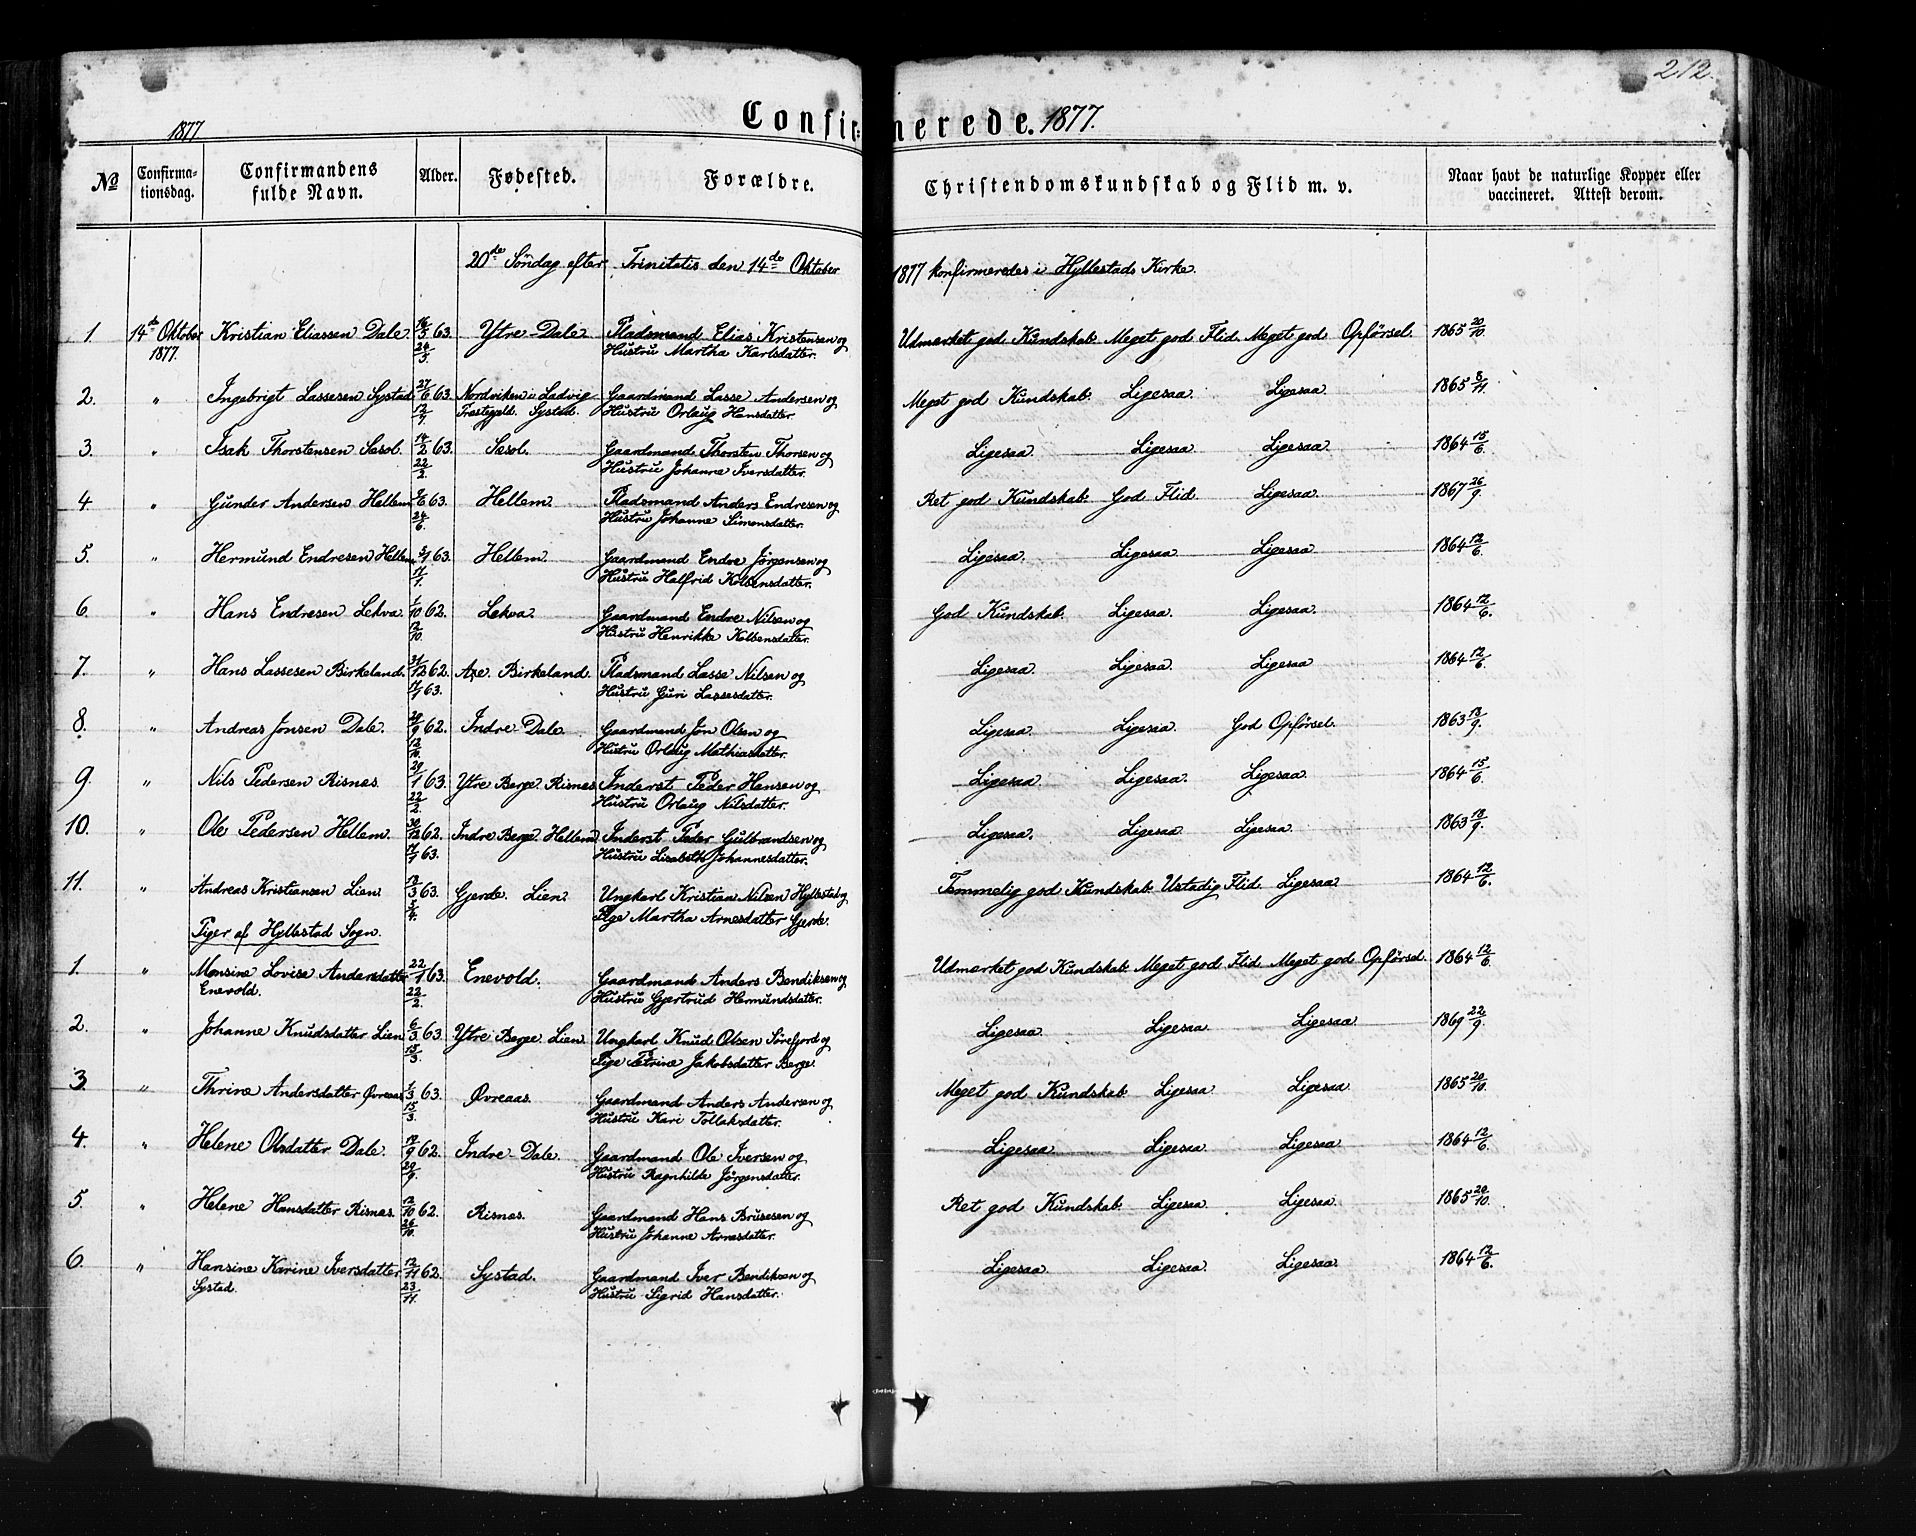 212.
1877. Confirmerede. 1877.
No Confirmationsdag. Confirmandens fulde Navn. Alder. Fødested. Forældre. Christendomskundskab og Flid m. v. Naar havt de naturlige Kopper eller vaccineret. Attest derom.
20de Söndag efter Trinitatis den 14de Oktober 1877 konfirmeredes i Hyllestads Kirke.
1. 14de Oktober Kristian Eliassen Dale. 63. Ytre Dale. Pladsmand Elias Kristensen og Udmærket god Kundskab. Meget god Flid. Meget god Opførsel. 1865 20/10.
1877. 24/5. Hustru Martha Karlsdatter.
2. " Ingebrigt Lassesen Systad 27/6 63. Nordviken i Ladvig Gaardmand Lasse Andersen og Meget god Kundskab. Ligesaa. Ligesaa. 1865 8/11.
12/7. Præstegjeld. Systad. Hustru Orlaug Hansdatter.
3. " Isak Thorstensen Sæsol. 14/2 63. Sæsol. Gaardmand Thorsten Thorsen og Ligesaa. Ligesaa. Ligesaa. 1864 15/6.
22/2. Hustru Johanne Iversdatter.
4 " Gunder Andersen Hellem 63. Hellem. Pladsmand Anders Endresen og Ret god Kundskab. God Flid. Ligesaa. 1867 26/9.
24/6. Hustru Johanne Simonsdatter.
5. " Hermund Endresen Hellem 63. Hellem. Gaardmand Endre Jørgensen og Ligesaa. Ligesaa. Ligesaa. 1864 12/6.
17/1. Hustru Halfrid Kolbensdatter.
6. " Hans Endresen Lekva. 1/10 62. Lekva. Gaardmand Endre Nilsen og God Kundskab. Ligesaa. Ligesaa. 1864 12/6.
12/10. Hustru Henrikke Kolbensdatter.
7. " Hans Lassesen Birkeland. 31/12 62. Aze. Birkeland. Pladsmand Lasse Nilsen og Ligesaa. Ligesaa. Ligesaa 1864 12/6.
17/1 63. Hustru Guri Lassesdatter.
8. " Andreas Jonsen Dale. 20/9 62. Indre Dale. Gaardmand Jon Olsen og Ligesaa. Ligesaa. God Opførsel. 1863 18/9.
12/10. Hustru Orlaug Mathiasdatter.
9. " Nils Pedersen Risnæs. 29/1 63. Ytre Berge Risnæs Inderst Peder Hansen og Ligesaa. Ligesaa. Ligesaa. 1864 15/6.
22/2. Hustru Orlaug Nilsdatter.
10. " Ole Pedersen Hellem. 30/12 62. Indre Berge Hellem. Inderst Peder Gulbrandsen og Ligesaa. Ligesaa. Ligesaa. 1863 18/9.
17/1 63. Hustru Lisabeth Johannesdatter.
11. " Andreas Kristiansen Lien. 18/3 63. Gjerde. Lien. Ungkarl Kristian Nilsen Hyllestad og Temmelig god Kundskab. Ustadig Flid. Ligesaa. 1864 12/6.
Pige Martha Arnesdatter Gjerde.
Piger af Hyllestad Sogn.
1. " Monsine Lovise Andersdatter 22/1 63. Enevold. Gaardmand Anders Bendiksen og Udmærket god Kundskab. Meget god Flid. Meget god Opførsel. 1864 12/6.
Enevold. 22/2. Hustru Gjertrud Hermundsdatter.
2. " Johanne Knudsdatter Lien 6/3 63. Ytre Berge Lien. Ungkarl Knud Olsen Sörefjord og Ligesaa. Ligesaa. Ligesaa. 1869 22/9.
15/3. Pige Petrine Jakobsdatter Berge.
3. " Thrine Andersdatter Øvreaas 1/3 63. Øvreaas. Gaardmand Anders Andersen og Meget god Kundskab. Ligesaa. Ligesaa. 1865 20/10.
15/3. Hustru Kari Tollaksdatter.
4. " Helene Olsdatter Dale. 17/9 62. Indre Dale. Gaardmand Ole Iversen og Ligesaa. Ligesaa. Ligesaa. 1864 12/6.
29/9. Hustru Ragnhilde Jörgensdatter.
5. " Helene Hansdatter Risnæs. 12/10 62. Risnæs. Gaardmand Hans Brusesen og Ret god Kundskab. Ligesaa. Ligesaa. 1865 20/10.
26/10. Hustru Johanne Arnesdatter.
6. " Hansine Karine Iversdatter 12/11 62. Systad. Gaardmand Iver Bendiksen og Ligesaa. Ligesaa. Ligesaa. 1864 12/6.
Systad. 23/11. Hustru Sigrid Hansdatter.